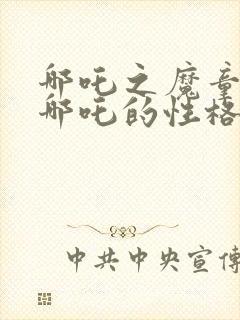 哪吒之魔童
哪吒的性格
中共中央宣传